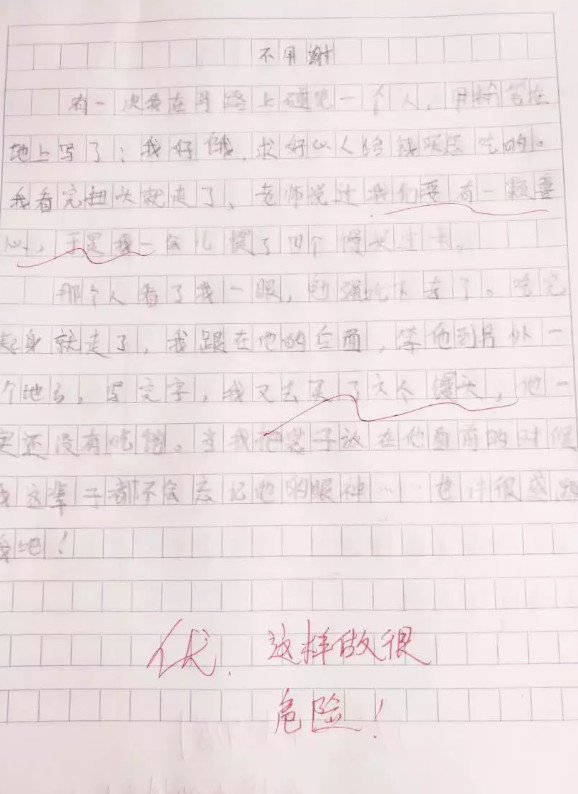 不用谢
有一次我在马路上碰见一个人,用粉笔在
地上写了:我好饿,求好心人给钱买点吃的。
我看完扭头就走了,老师说过我们要有一颗善
心,于是我一会儿提了四个馒头过去。
那个人看了我一眼,勉强吃下去了。吃完
起身就走了,我跟在他的后面,等他到另外一
个地方,写完字,我又去买了六个馒头,他一
定还没有吃饱。当我把袋子放在他面前的时候
我这辈子都不会忘记他的眼神……也许很感激
我吧!
优. 这样做很
危险!